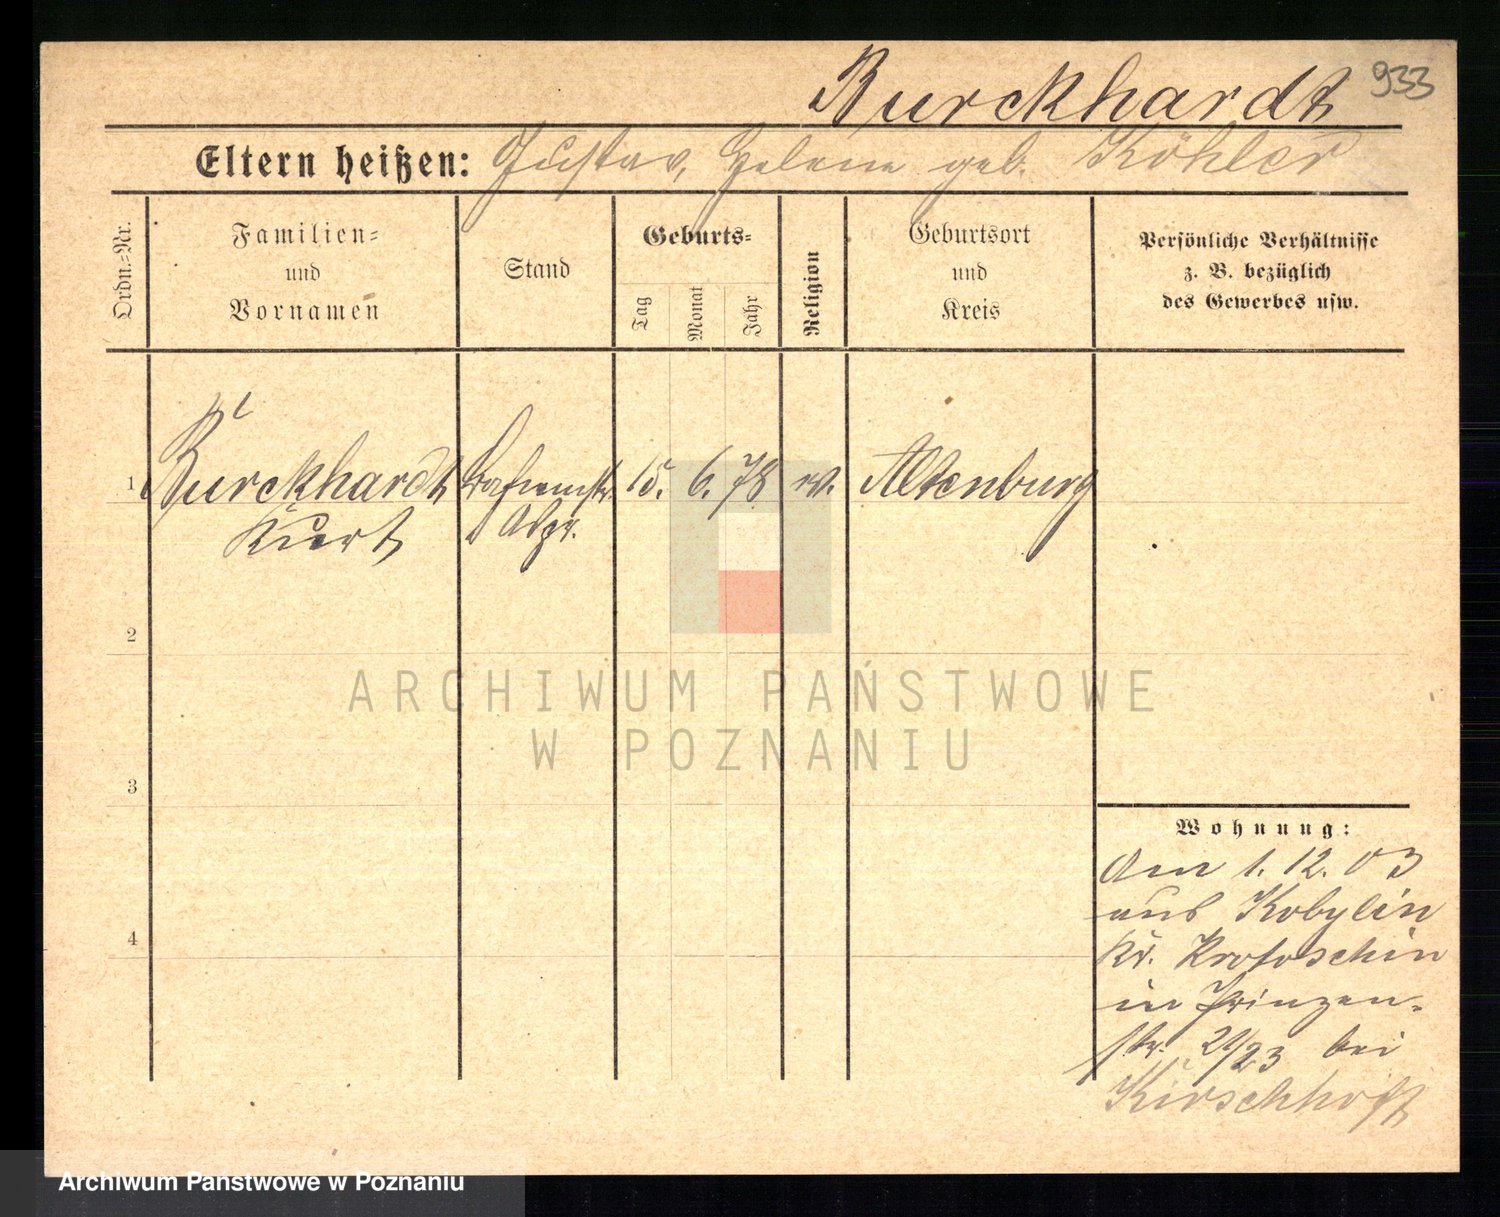 Burckhardt 933
Eltern heißen: Gustav, Helene geb. Köhler
Ordn.-Nr.
Familien-
und
Vornamen
Stand
Geburts-
Tag
Monat
Jahr
Religion
Geburtsort
und
Kreis
Persönliche Verhältnisse
z. B. bezüglich
des Gewerbes usw.
1 Burckhardt 15. 6. 78 ev. Altenburg
Kurt
2
3
4
Wohnung:
Am 1. 12. 03
aus Kobylin
Kr. Krotoschin
in Prinzen-
str. 21/23 bei
Kirschhoft
ARCHIWUM PAŃSTWOWE
W POZNANIU
Archiwum Państwowe w Poznaniu